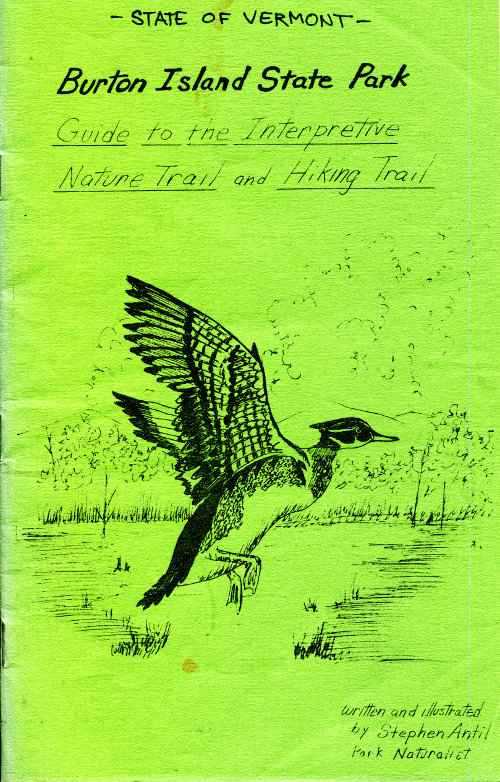 - STATE OF VERMONT -
Burton Island State Park
Guide to the Interpretive
Nature Trail and Hiking Trail
written and illustrated
by Stephen Antil
Park Naturalist